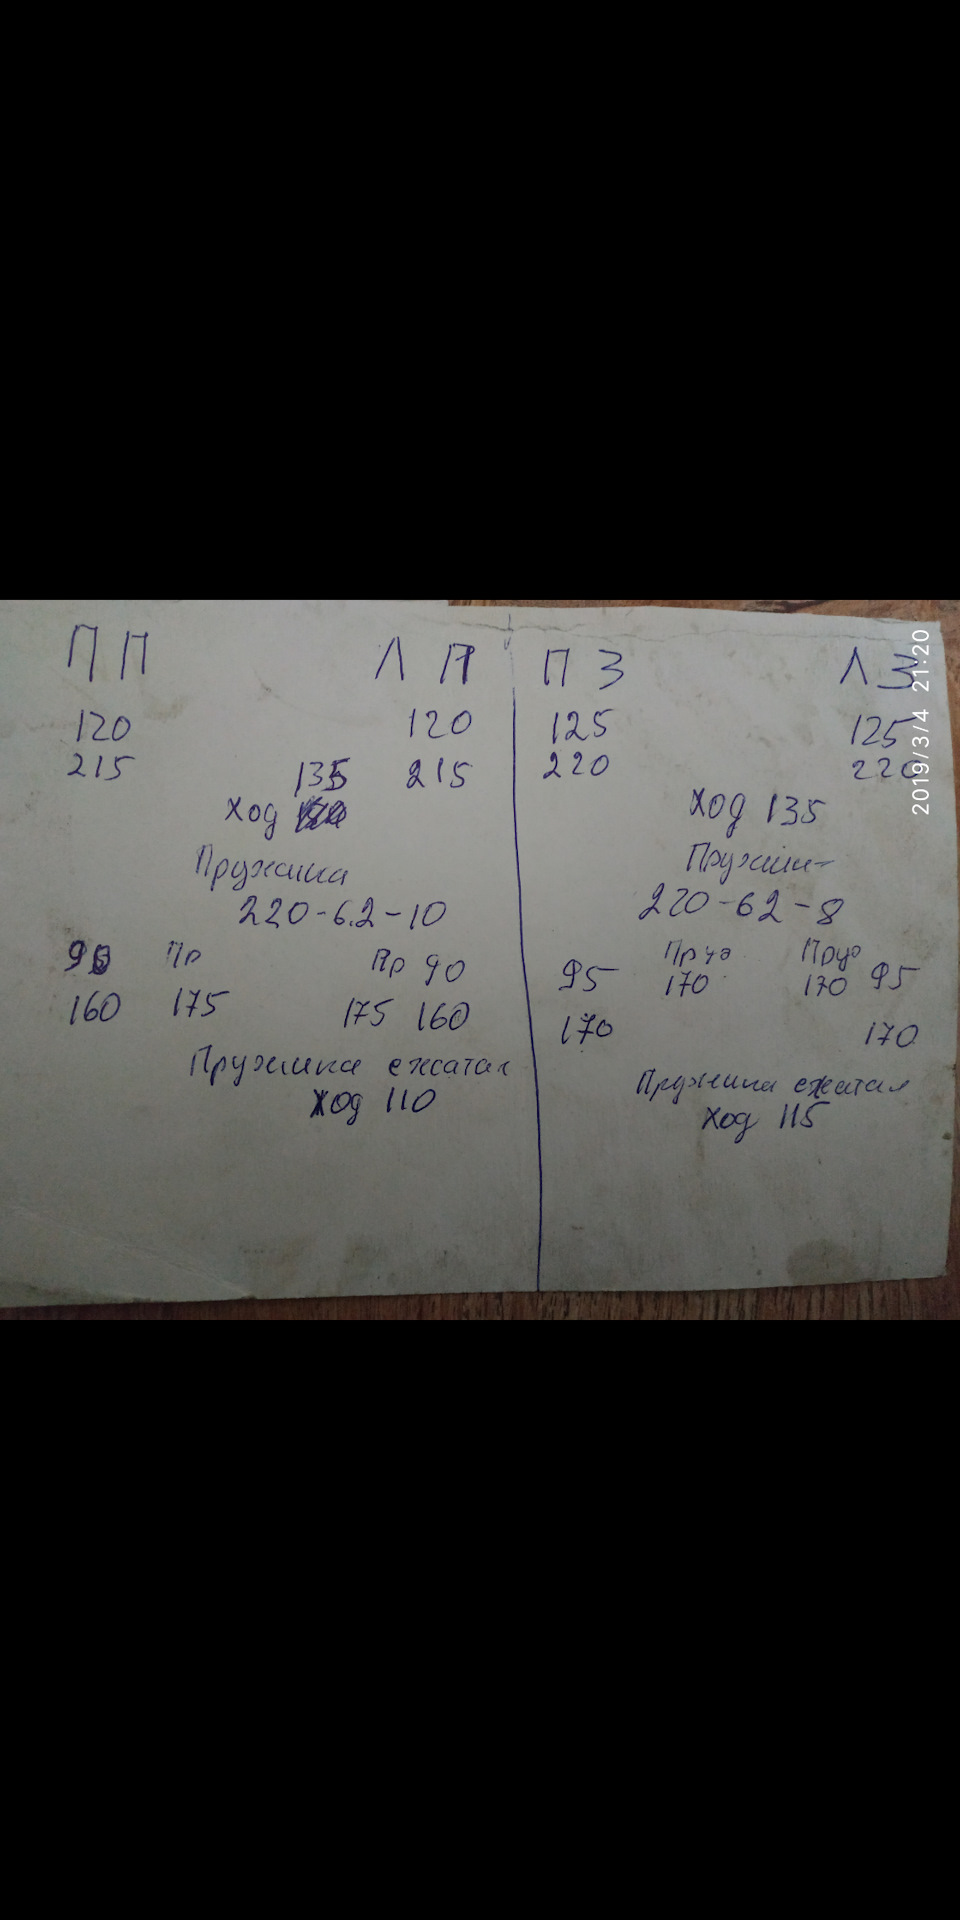 ПП ЛП
120 120
215 135 215
Ход
Пружина
220-6.2-10
90 Пр Пр 90
160 175 175 160
Пружина сжатая
Ход 110
ПЗ ЛЗ
125 125
220 220
Ход 135
Пружин
220-62-8
95 170 170 95
170 170
Пружина сжатая
Ход 115
2019/3/4 21:20